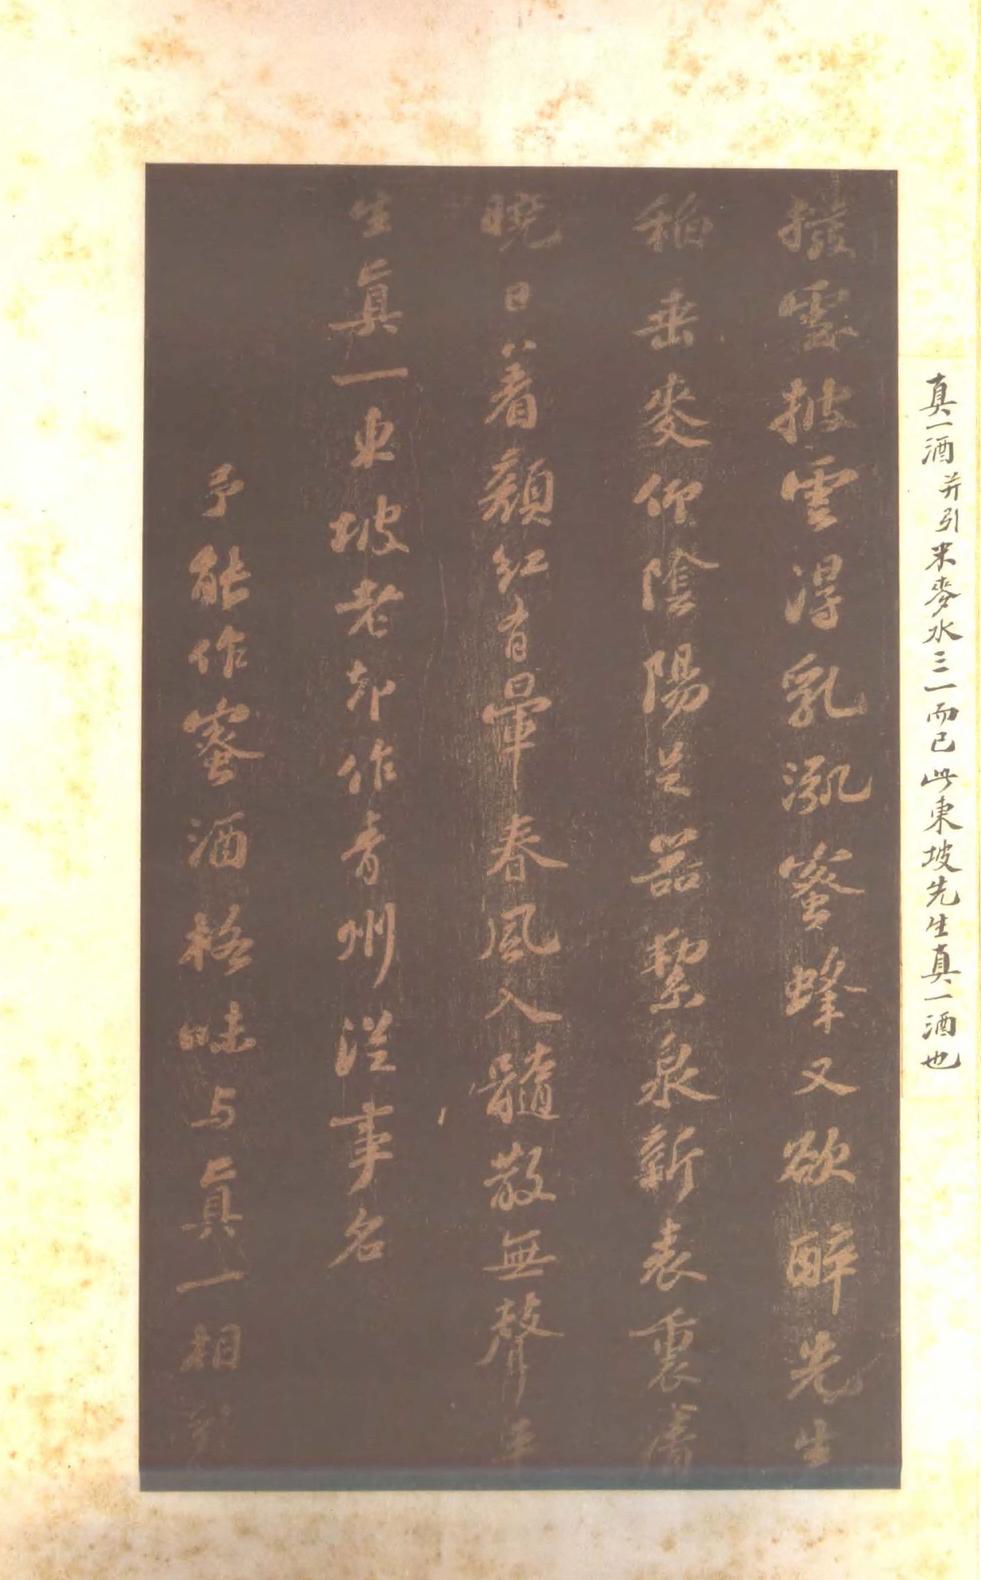 真一酒并引米麥水三一而已此東坡先生真一酒也
撥雪披雲得乳泓蜜蜂又欲醉先生
稻垂麥仰陰陽足器絜泉新表裏清
曉日著顏紅有暈春風入髓散無聲平
生真一東坡老却作青州從事名
予能作蜜酒格味与真一相